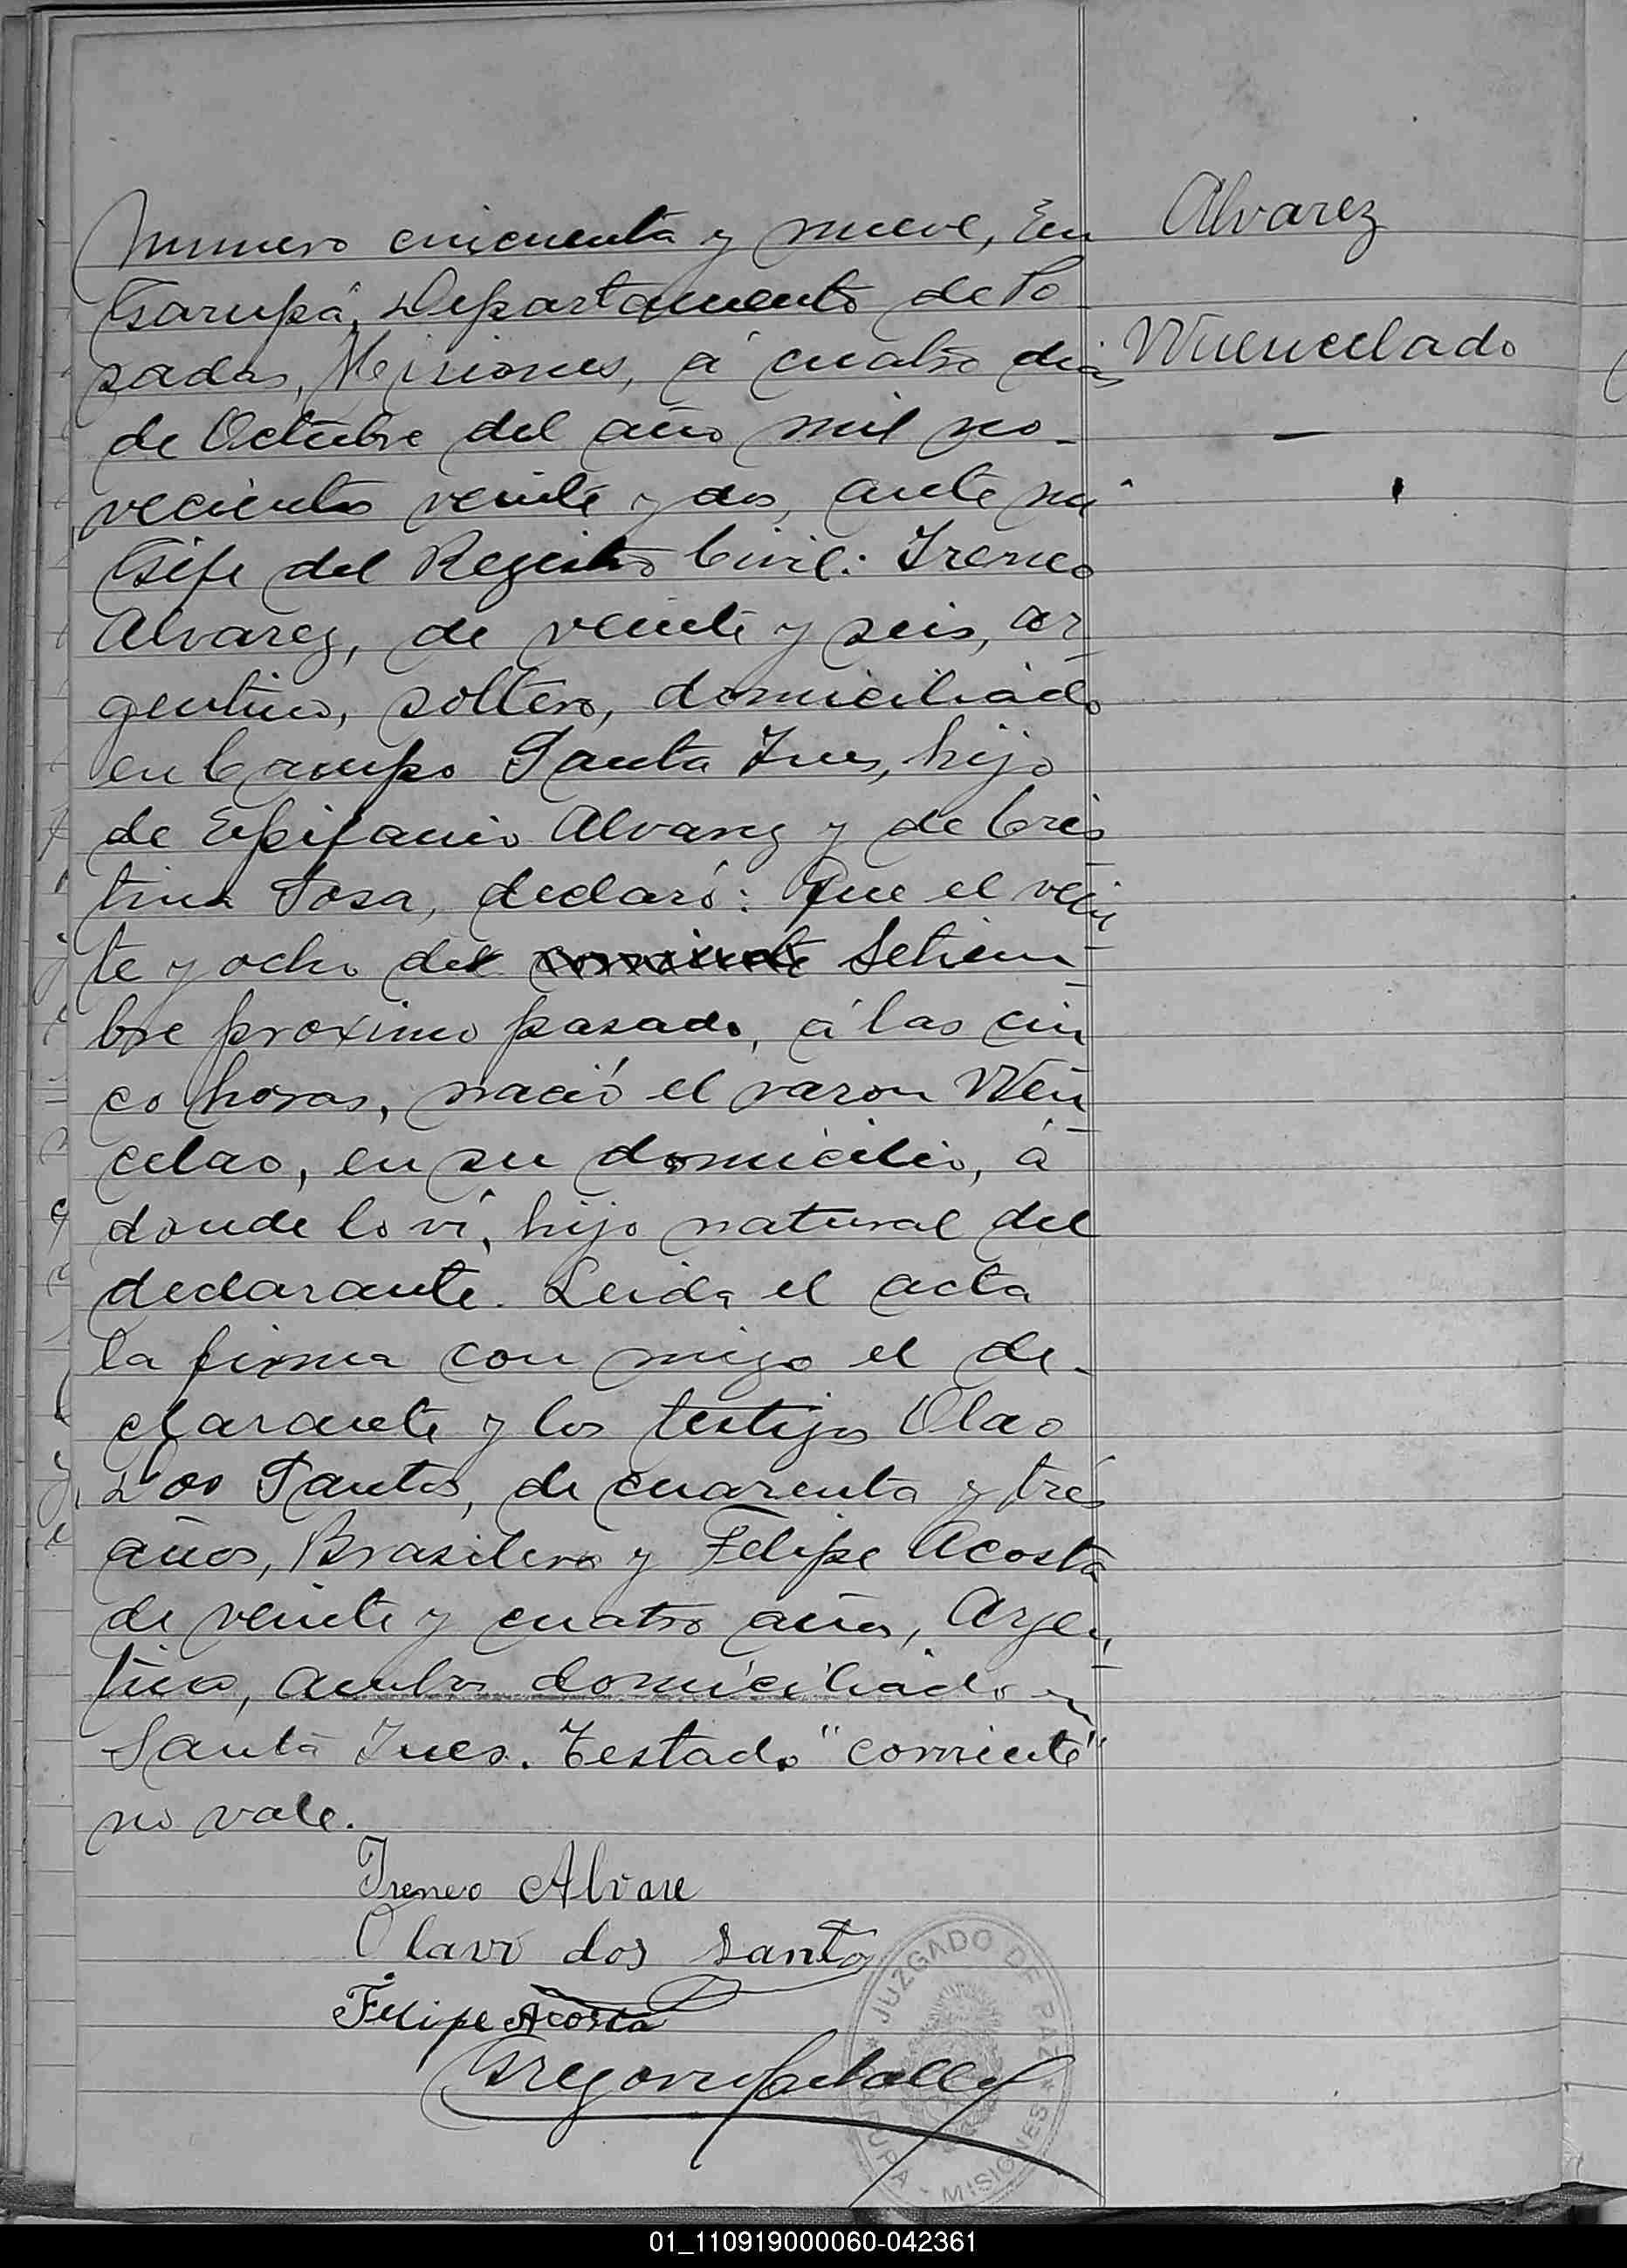 Alvarez
Wuencelado
Numero cincuenta y nueve, En
Garupá, Departamento de Po-
sadas, Misiones, á cuatro dias
de Octubre del año mil no-
vecientos veinte y dos, ante mi
Gefe del Registro Civil: Ireneo
Alvarez, de veinte y seis, ar-
gentino, soltero, domiciliado
en Campo Santa Ines, hijo
de Epifanio Alvarez y de Cris
tina Sosa, declaró: Que el vein
te y ocho del corriente Setiem-
bre proximo pasado, á las cin
co horas, nació el varon Wen
celao, en su domicilio, á
donde lo ví, hijo natural del
declarante. Leida el acta
la firma con migo el de-
clarante y los testigos Olao
Dos Santos, de cuarenta y tres
años, Brasilero y Felipe Acosta
de veinte y cuatro años, Argen-
tino, ambos domiciliado en
Santa Ines. Testado "corriente"
no vale.
Ireneo Alvare
Olavo dos Santos
Felipe Acosta
JUZGADO DE PAZ
MISIONES
01_110919000060-042361